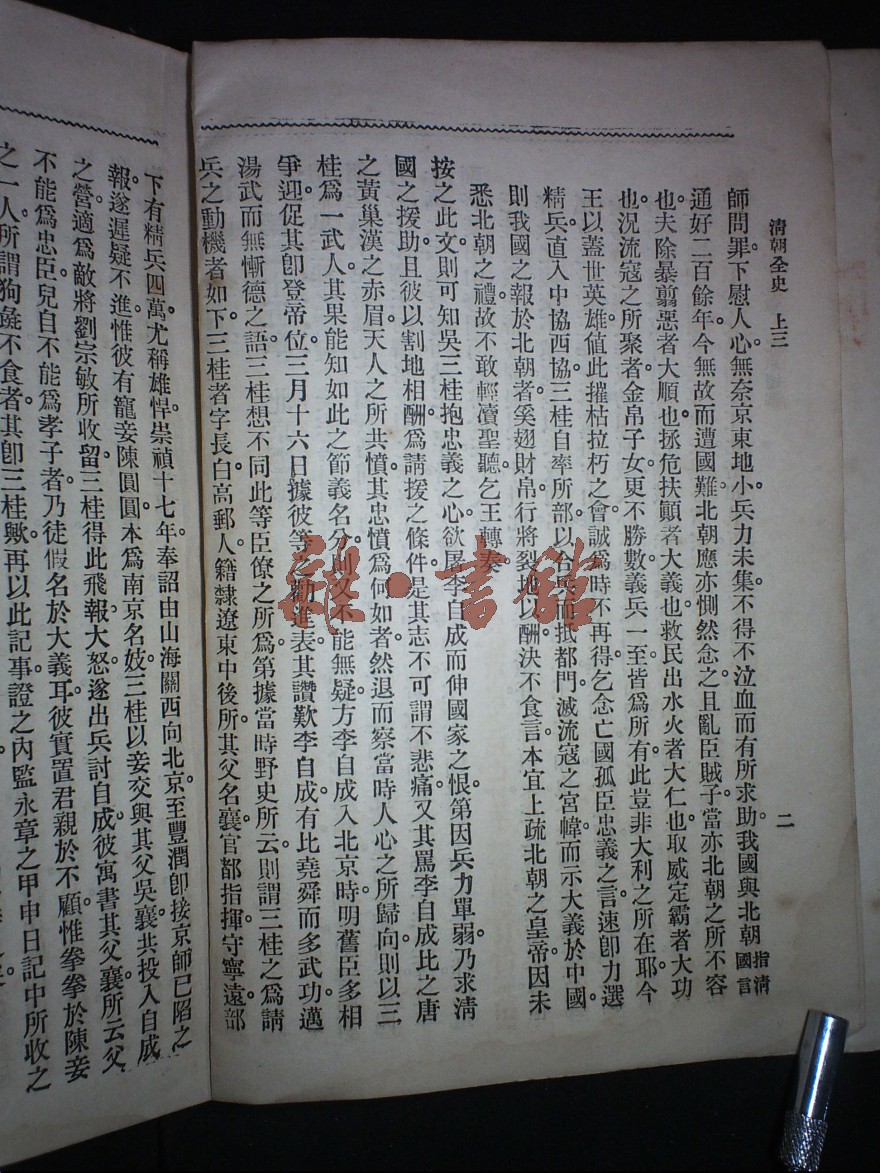 清朝全史 上三
二
師問罪。下慰人心。無奈京東地小。兵力未集。不得不泣血而有所求助。我國與北朝指清國言
通好二百餘年。今無故而遭國難。北朝應亦惻然念之。且亂臣賊子。當亦北朝之所不容
也。夫除暴翦惡者大順也。拯危扶顚者大義也。救民出水火者大仁也。取威定霸者大功
也。況流寇之所聚者金帛子女。更不勝數。義兵一至。皆爲所有。此豈非大利之所在耶。今
王以蓋世英雄。値此摧枯拉朽之會。誠爲時不再得。乞念亡國孤臣忠義之言。速卽力選
精兵。直入中協西協。三桂自率所部以合兵而抵都門。滅流寇之宮幃。而示大義於中國。
則我國之報於北朝者。奚翅財帛。行將裂地以酬。決不食言。本宜上疏北朝之皇帝。因未
悉北朝之禮。故不敢輕瀆聖聽。乞王轉奏。
按之此文。則可知吳三桂抱忠義之心。欲屠李自成而伸國家之恨。第因兵力單弱。乃求淸
國之援助。且彼以割地相酬。爲請援之條件。是其志不可謂不悲痛。又其罵李自成。比之唐
之黃巢。漢之赤眉。天人之所共憤。其忠憤爲何如者。然退而察當時人心之所歸向。則以三
桂爲一武人。其果能知如此之節義名分。則又不能無疑。方李自成入北京時。明舊臣多相
爭迎。促其卽登帝位。三月十六日。據彼等之勸進表。其讚歎李自成。有比堯舜而多武功。邁
湯武而無慚德之語。三桂想不同此等臣僚之所爲。第據當時野史所云。則謂三桂之爲請
兵之動機者如下。三桂者字長白。高郵人。籍隸遼東中後所。其父名襄。官都指揮。守寧遠部
下有精兵四萬。尤稱雄悍。崇禎十七年。奉詔由山海關西向北京。至豐潤。卽接京師已陷之
報。遂遲疑不進。惟彼有寵妾陳圓圓。本爲南京名妓。三桂以妾交與其父吳襄。共投入自成
之營。適爲敵將劉宗敏所收留。三桂得此飛報大怒。遂出兵討自成。彼寓書其父襄所云。父
不能爲忠臣。兒自不能爲孝子者。乃徒假名於大義耳。彼實置君親於不顧。惟拳拳於陳妾
之一人。所謂狗彘不食者。其卽三桂歟。再以此記事。證之內監永章之甲申日記中所收之